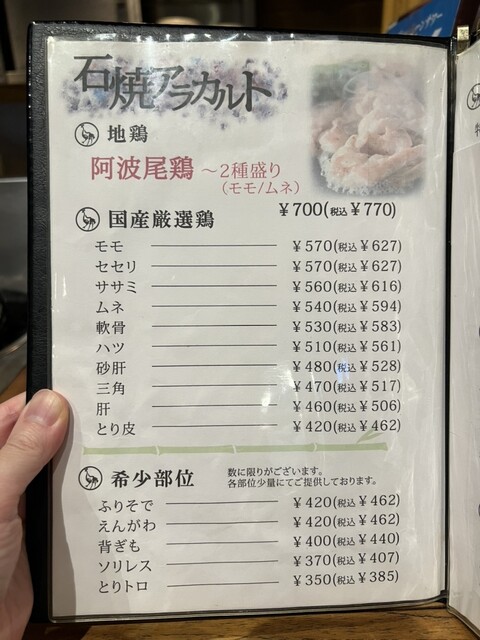 石焼アラカルト
地鶏
阿波尾鶏 ～2種盛り
(モモ/ムネ)
￥700(税込￥770)
国産厳選鶏
モモ ￥570(税込￥627)
セセリ ￥570(税込￥627)
ササミ ￥560(税込￥616)
ムネ ￥540(税込￥594)
軟骨 ￥530(税込￥583)
ハツ ￥510(税込￥561)
砂肝 ￥480(税込￥528)
三角 ￥470(税込￥517)
肝 ￥460(税込￥506)
とり皮 ￥420(税込￥462)
希少部位
数に限りがございます。
各部位少量にてご提供しております。
ふりそで ￥420(税込￥462)
えんがわ ￥420(税込￥462)
背ぎも ￥400(税込￥440)
ソリレス ￥370(税込￥407)
とりトロ ￥350(税込￥385)